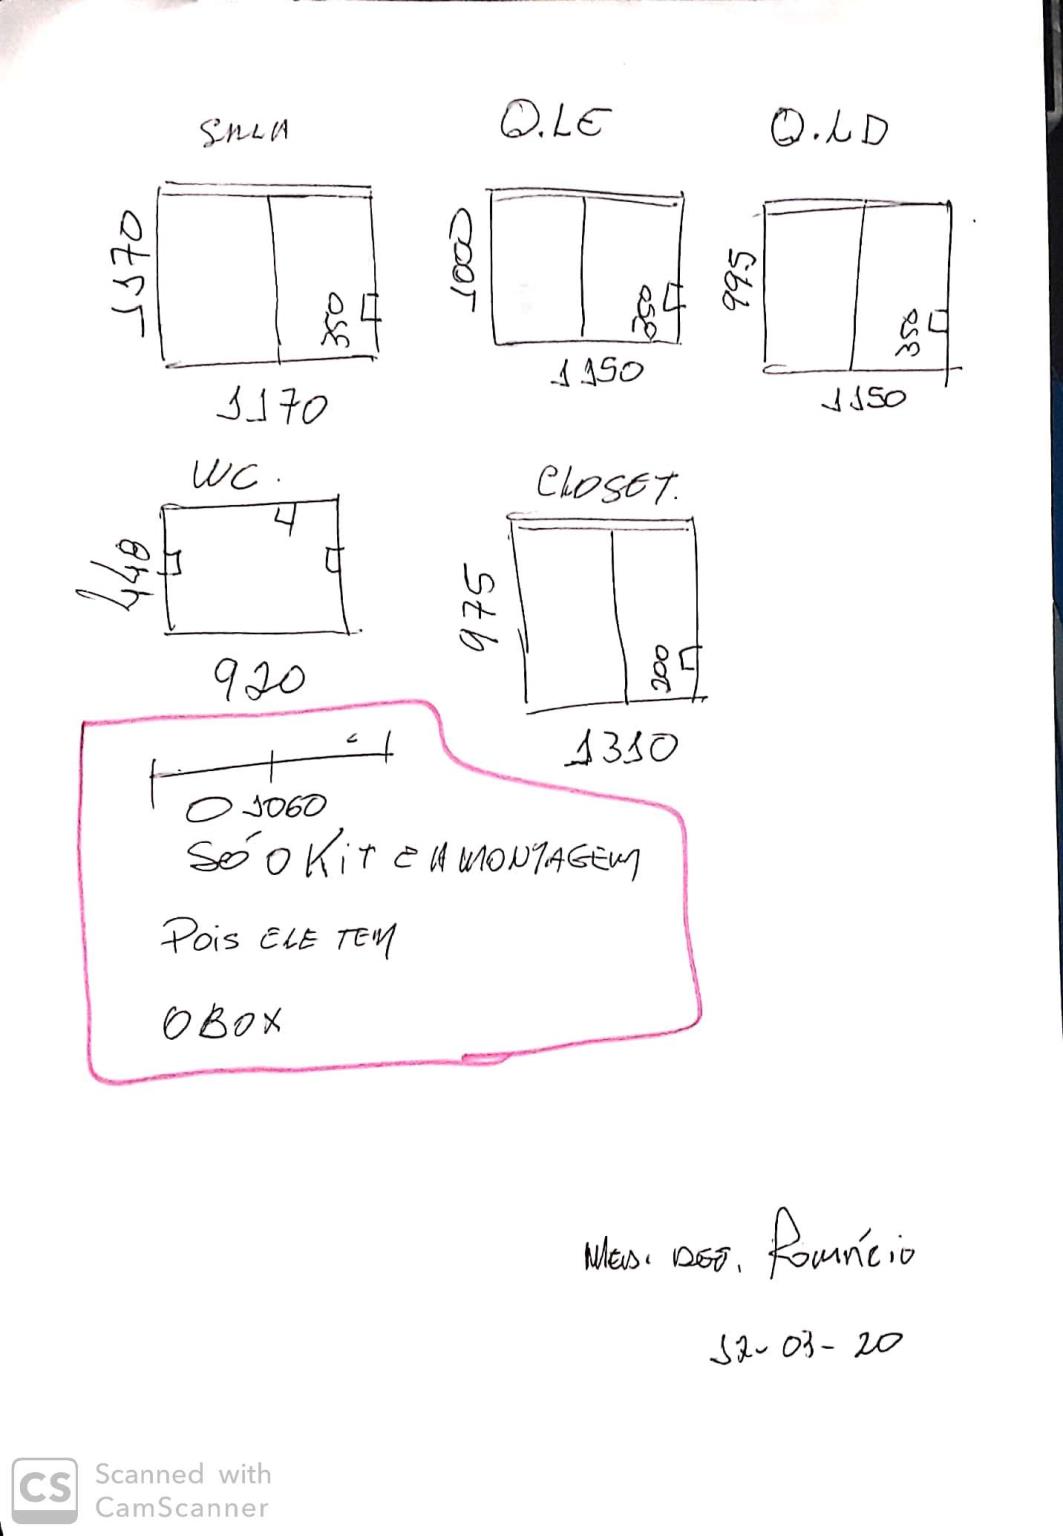 SALA
Q.LE
Q.LD
1170
350
1170
1000
350
1150
995
350
1150
WC.
448
920
CLOSET.
975
200
1310
1060
SÓ O KiT E A MONTAGEM
Pois ELE TEM
O BOX
12-03-20
CS
Scanned with
CamScanner